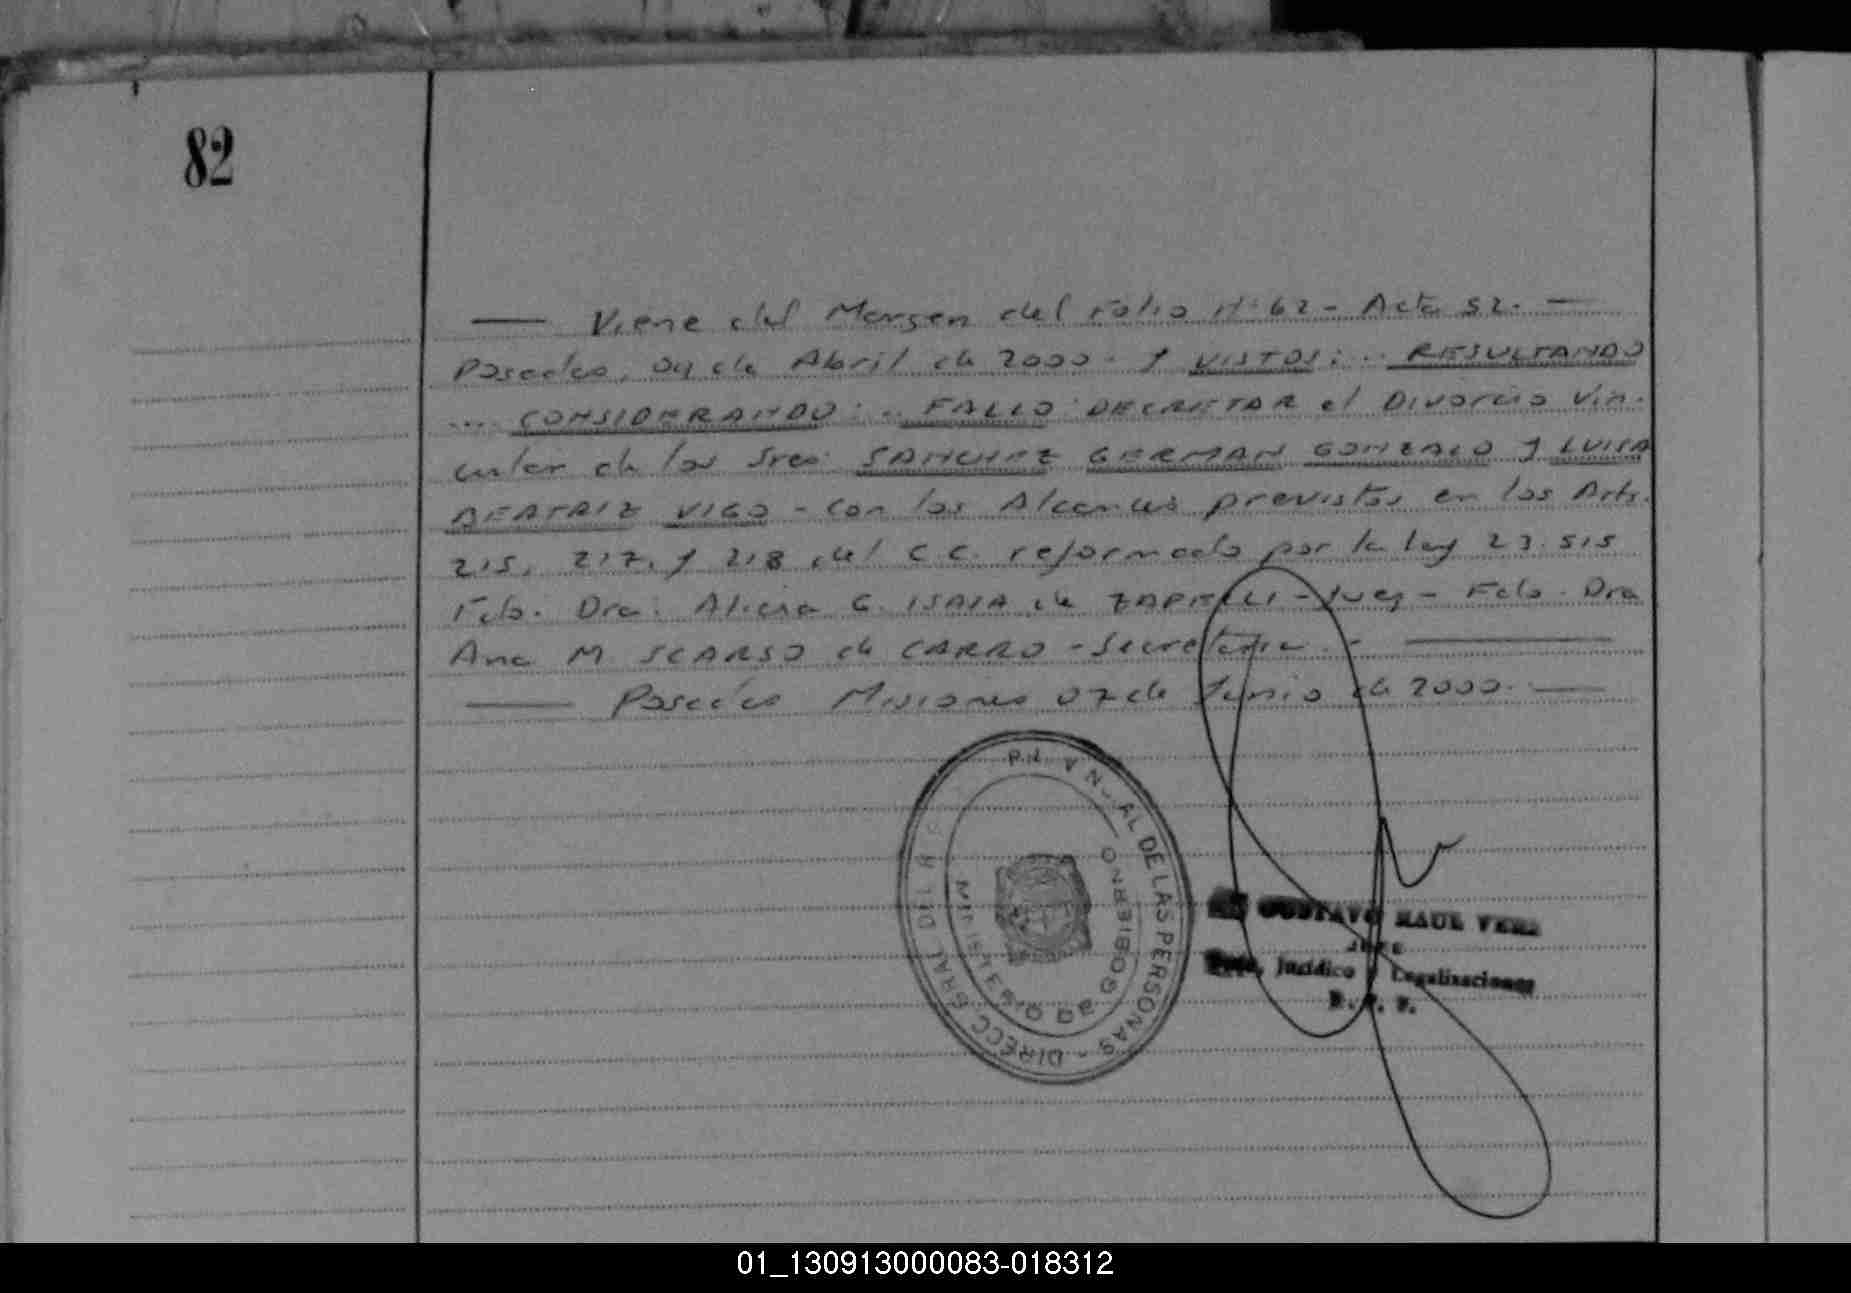 82
— Viene del Margen del Folio N° 62 - Acta 52. —
Posadas, 04 de Abril de 2000. Y VISTOS: .. RESULTANDO
.... CONSIDERANDO: .. FALLO: DECRETAR el Divorcio Vin-
cular de los Sres. SANCHEZ GERMAN GONZALO y LUISA
BEATRIZ VIGO - con los Alcances previstos en los Arts.
215, 217, y 218 del C.C. reformado por la ley 23.515
Fdo. Dra. Alicia G. ISAIA de - Juez - Fdo. Dra
Ana M. SCARSO de CARRO - Secretaria. - —
— Posadas Misiones 07 de Junio de 2000. —
DIRECC GRAL DEL DE LAS PERSONAS
MISIONES
GOBIERNO
GUSTAVO RAUL VERA
JEFE
Jurídico y Legalizaciones
01_130913000083-018312